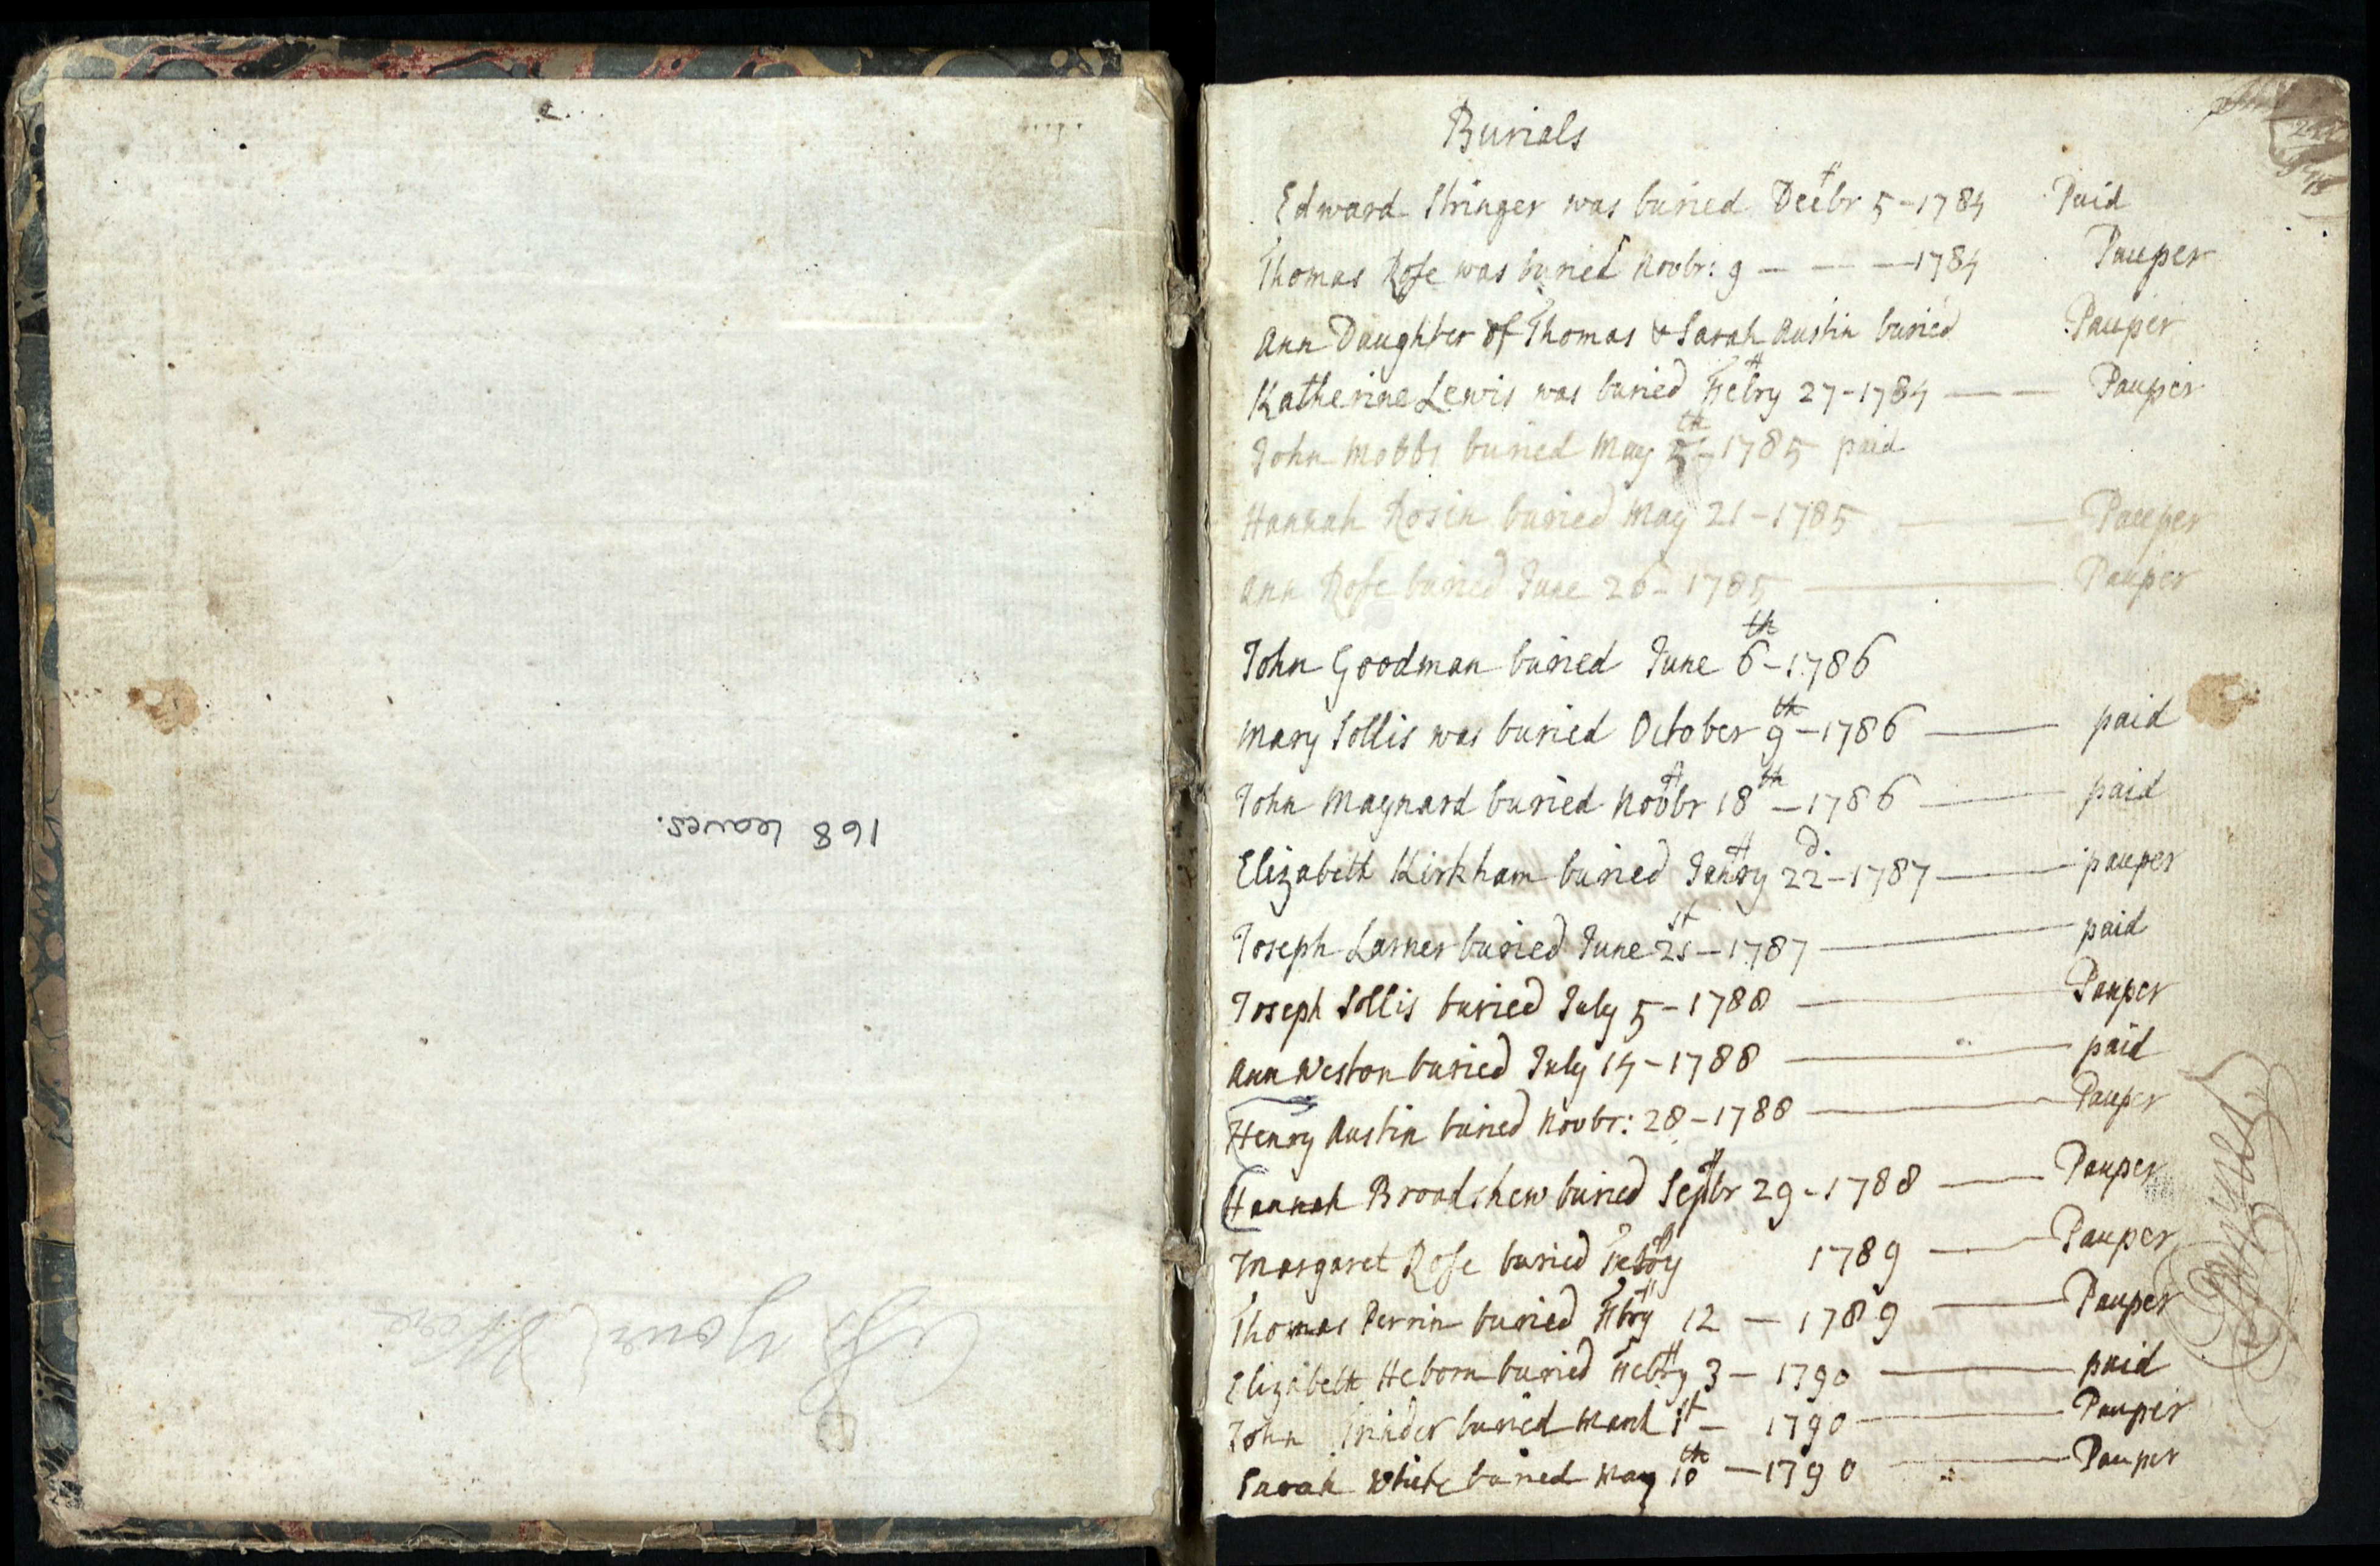 168 leaves.
Burials
Edward Stringer was buried Decbr 5-1784 Paid
Thomas Rose was buried Novbr: 9 - - - 1784 Pauper
Ann Daughter of Thomas & Sarah Austin buried Pauper
Katherine Lewis was buried Febry 27-1784 — — Pauper
John Mobbs buried May 5th-1785 paid
Hannah Rosin buried May 21-1785 — — Pauper
Ann Rose buried June 26-1785 — Pauper
John Goodman buried June 6th-1786
Mary Sollis was buried October 9th-1786 — paid
John Maynard buried Novbr 18th-1786 — paid
Elizabeth Kirkham buried Janry 22d-1787 — pauper
Joseph Larner buried June 21st-1787 — paid
Joseph Sollis buried July 5-1788 — Pauper
Ann Weston buried July 14-1788 — paid
Henry Austin buried Novbr: 28-1788 — Pauper
Hannah Broadshew buried Septbr 29-1788 — Pauper
Margaret Rose buried Febry 1789 — Pauper
Thomas Perrin buried Fbry 12 — 1789 — Pauper
Elizabeth Heborn buried Febry 3 — 1790 — paid
John Grinder buried March 1st — 1790 — Pauper
Sarah White buried May 10th — 1790 — Pauper